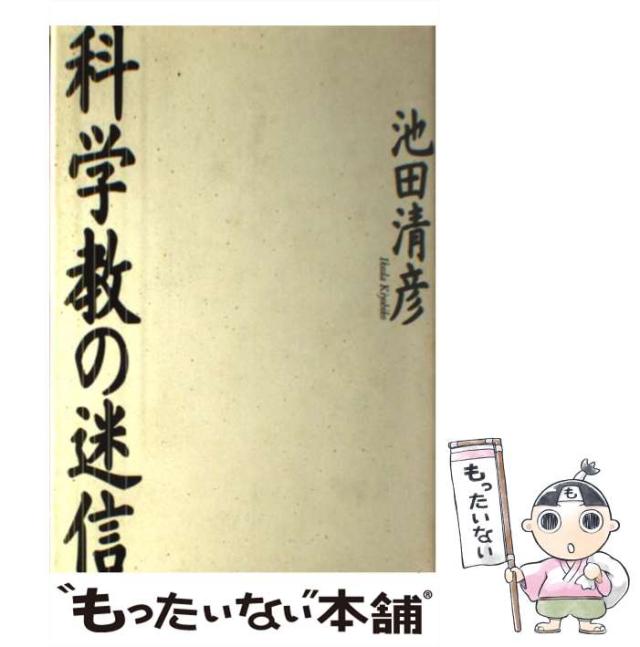 科学教の迷信
池田清彦
Ikeda Kiyohiko
"もったいない"本舗®
もったいない
も